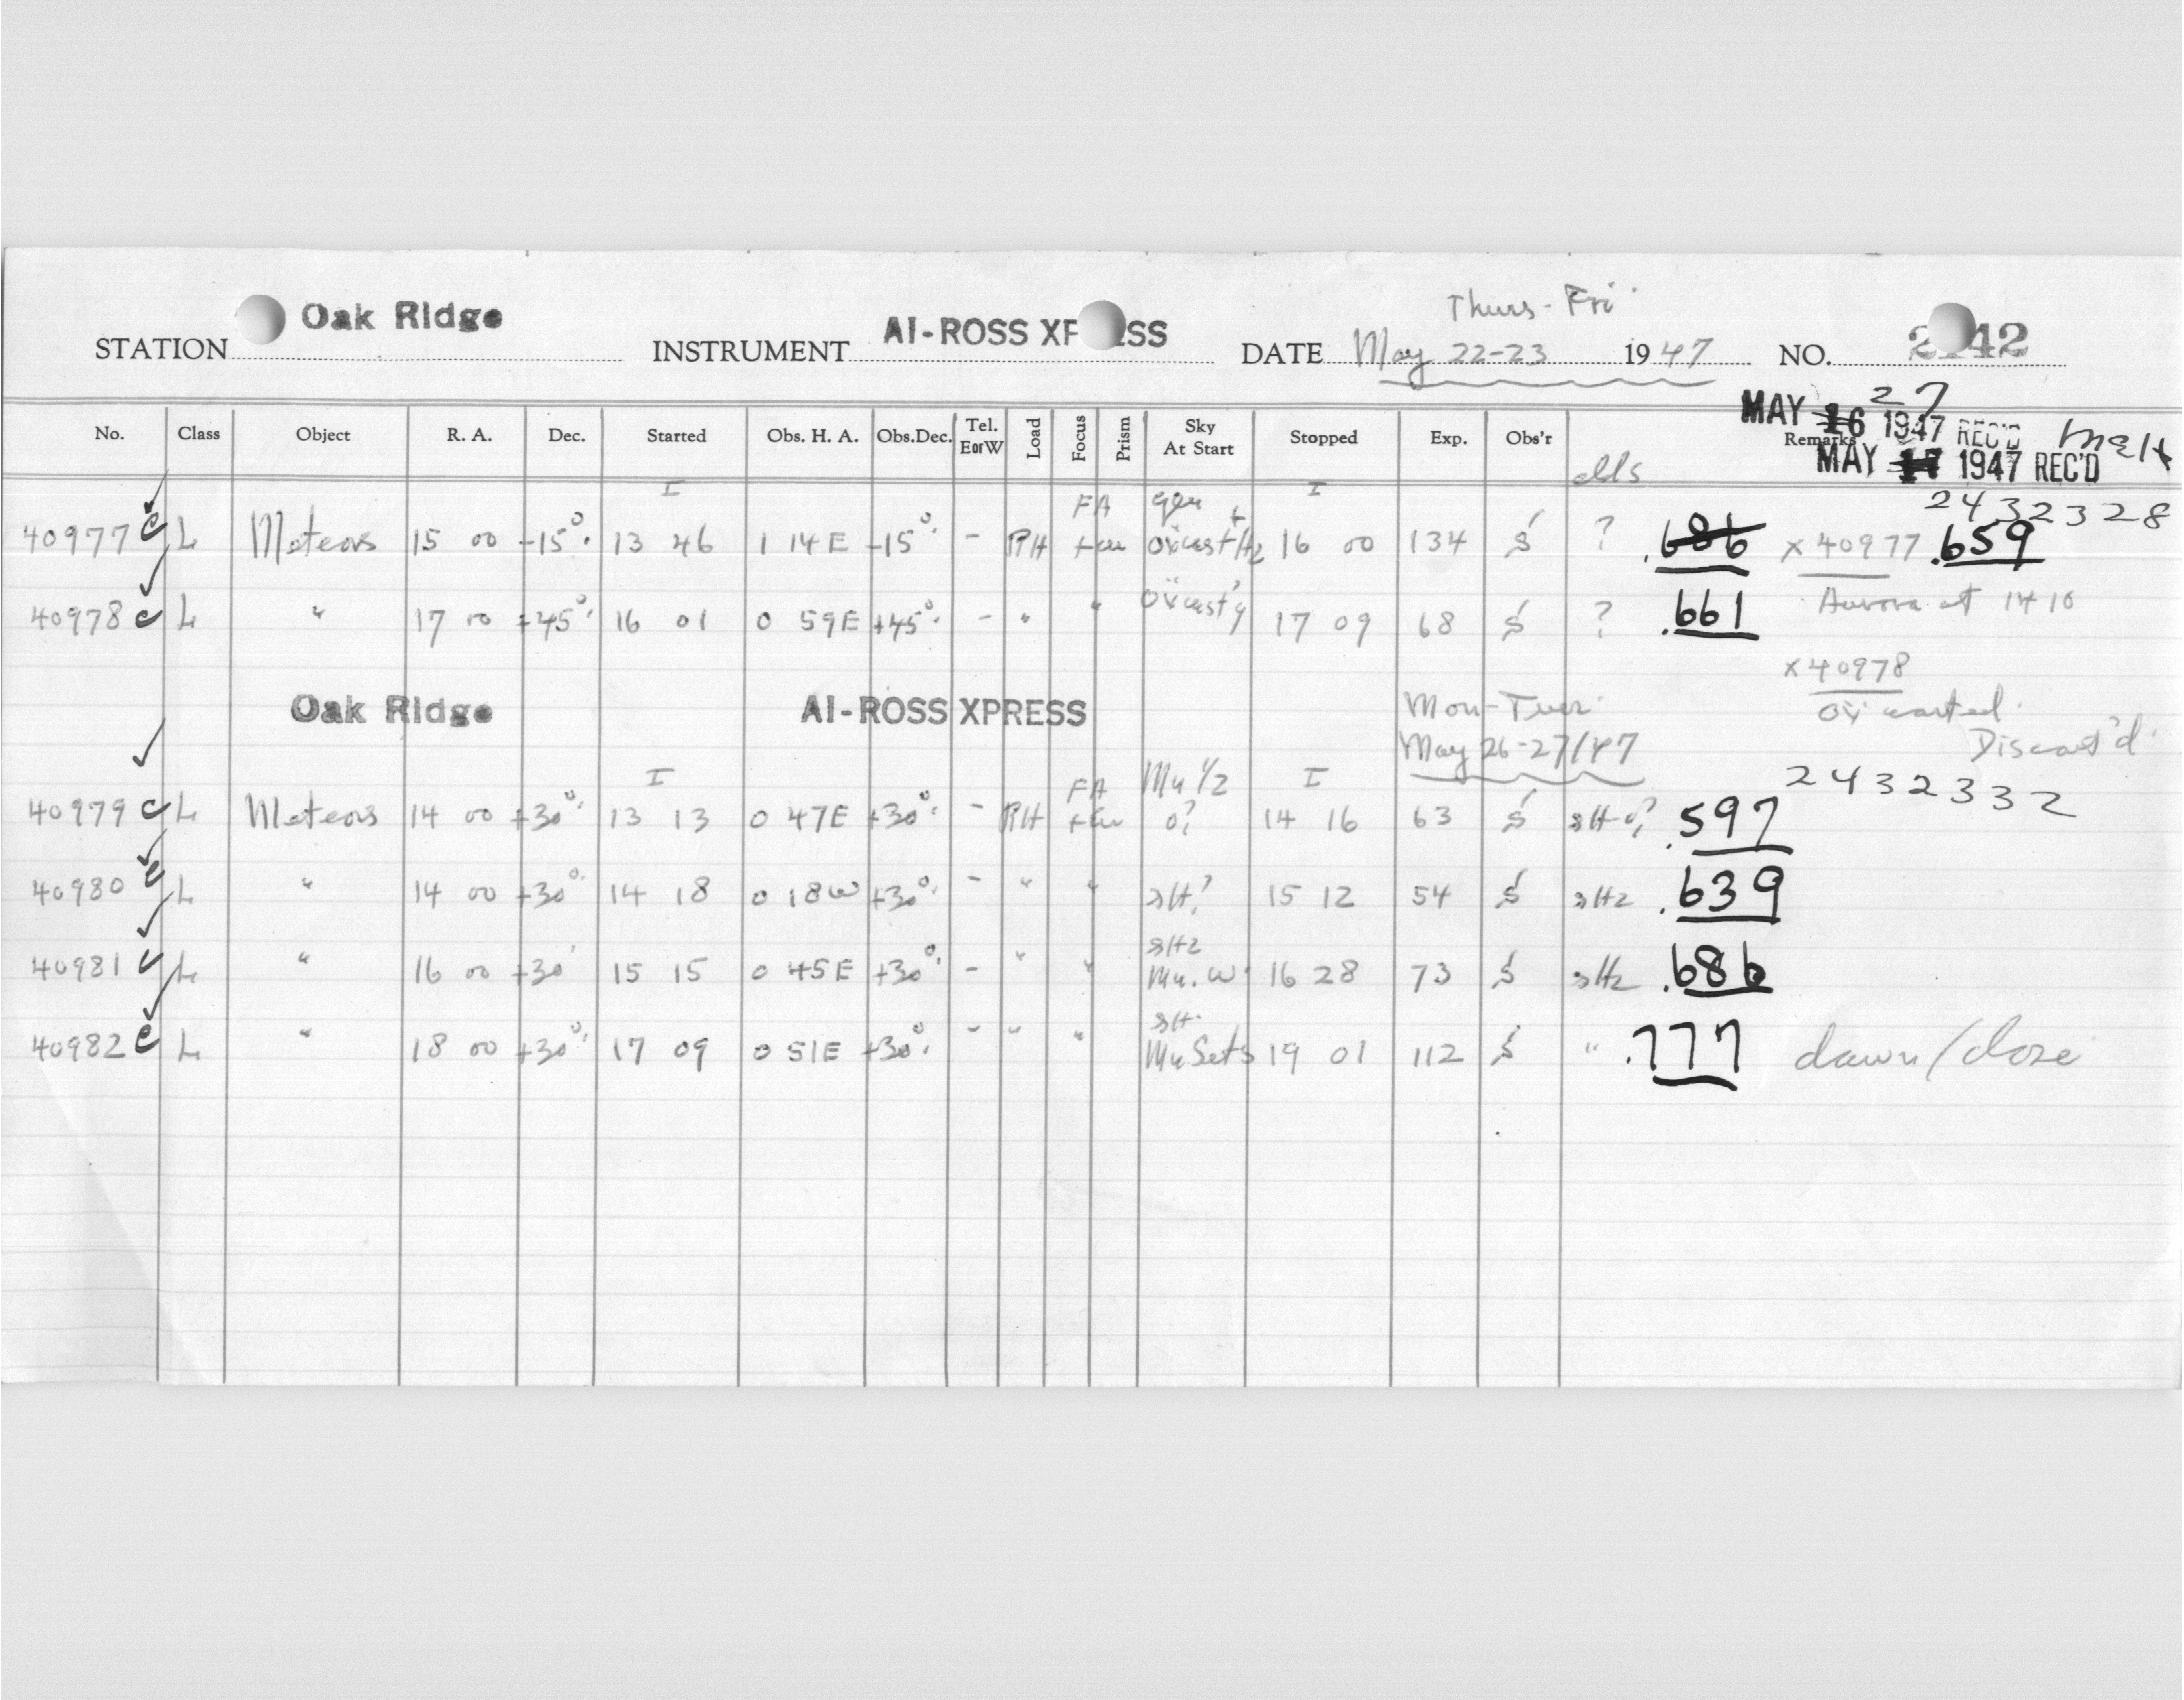 Thurs - Fri
STATION Oak Ridge INSTRUMENT AI-ROSS XP ESS DATE May 22-23 1947 NO. 2 42
MAY 16 1947 REC'D 27
No. Class Object R. A. Dec. Started Obs. H. A. Obs. Dec. Tel. E or W Load Focus Prism Sky At Start Stopped Exp. Obs'r Remarks
MAY 17 1947 REC'D
I FA I 2432328
40977 c L Meteors 15 00 -15° 13 46 1 14E -15° - RH 16 00 134 S ? .686 x 40977 .659
40978 c L " 17 00 +45° 16 01 0 59E +45° - " " 17 09 68 S ? .661 Aurora at 14 10
x 40978
Oak Ridge AI-ROSS XPRESS Mon-Tues
May 26-27/47 Discard'd
I FA Mn 1/2 I 2432332
40979 c L Meteors 14 00 +30° 13 13 0 47E +30° - RH o? 14 16 63 S .597
40980 c L " 14 00 +30° 14 18 0 18W +30° - " " sH? 15 12 54 S sHz .639
sHz
40981 c L " 16 00 +30 15 15 0 45E +30° - " " Mn. W 16 28 73 S sHz .686
sH.
40982 c L " 18 00 +30° 17 09 0 51E +30° - " " Mn Sets 19 01 112 S " .777 dawn/close